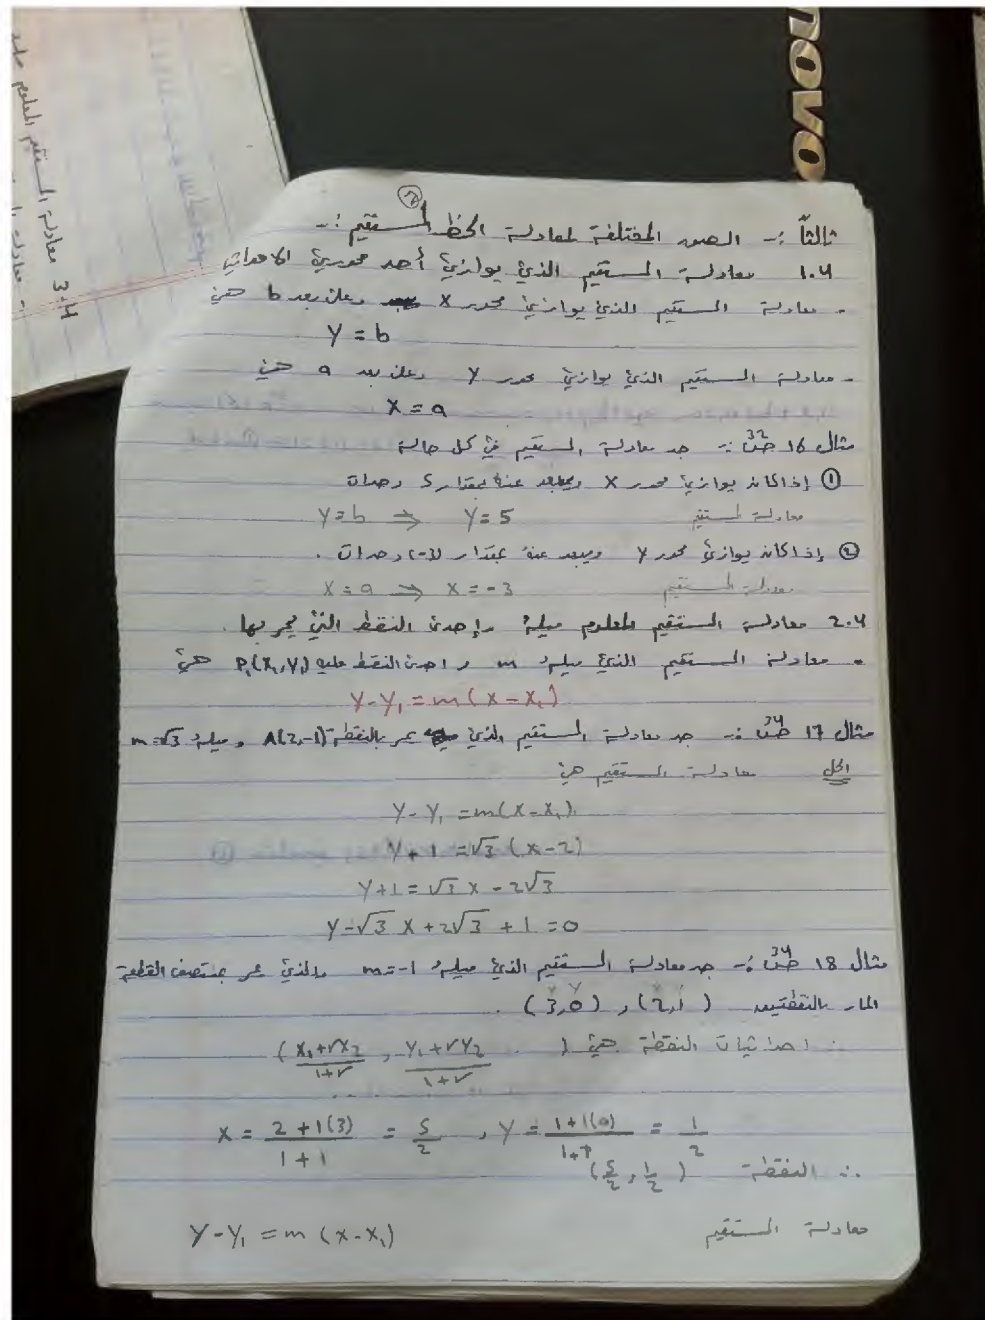 novo
ثالثاً :- الصور المختلفة لمعادلة الخط المستقيم :-
1.4 معادلة المستقيم الذي يوازي أحد محوري الاحداثي
- معادلة المستقيم الذي يوازي محور X وعلى بعد b هي
Y = b
- معادلة المستقيم الذي يوازي محور Y وعلى بعد a هي
X = a
مثال 16 ص32 :- جد معادلة المستقيم في كل حالة
① إذا كان يوازي محور X ويبعد عنه بمقدار 5 وحدات
معادلة المستقيم Y = b ⇒ Y = 5
② إذا كان يوازي محور Y ويبعد عنه بمقدار (-3) وحدات .
معادلة المستقيم X = a ⇒ X = -3
2.4 معادلة المستقيم المعلوم ميله وإحدى النقط التي يمر بها .
- معادلة المستقيم الذي ميله m واحدى النقط عليه P₁(X₁,Y₁) هي
Y - Y₁ = m(X - X₁)
مثال 17 ص34 :- جد معادلة المستقيم الذي يمر بالنقطة A(2,-1) وميله m=√3
الحل معادلة المستقيم هي
Y - Y₁ = m(X - X₁)
Y + 1 = √3 (X - 2)
Y + 1 = √3 X - 2√3
Y - √3 X + 2√3 + 1 = 0
مثال 18 ص34 :- جد معادلة المستقيم الذي ميله m = -1 والذي يمر بمنتصف القطعة
المار بالنقطتين (2,1) , (3,0) .
∴ احداثيات النقطة هي ( (X₁+rX₂)/(1+r) , (Y₁+rY₂)/(1+r) )
X = (2+1(3))/(1+1) = 5/2 , Y = (1+1(0))/(1+1) = 1/2
∴ النقطة (5/2 , 1/2)
معادلة المستقيم Y - Y₁ = m (X - X₁)
3.4 معادلة المستقيم المعلوم